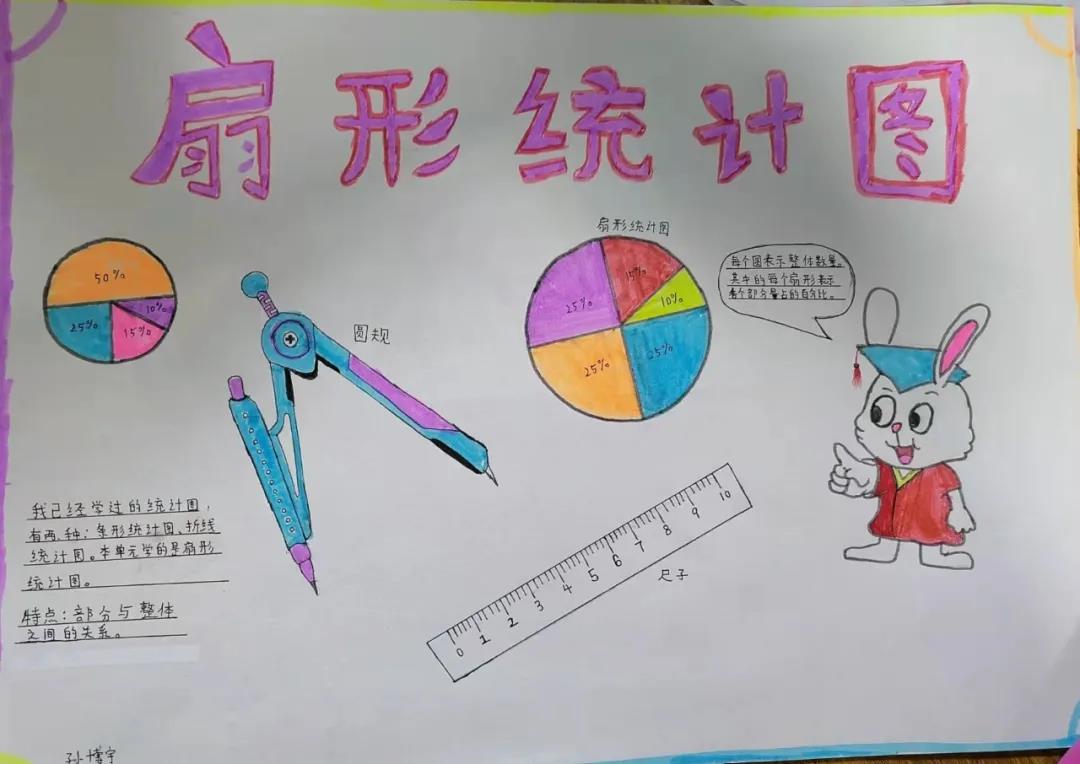 扇形统计图
50%
10%
25%
15%
圆规
扇形统计图
15%
25%
10%
25%
25%
每个圆表示整体数量。
其中的每个扇形表示
着个部分量占的百分比。
我已经学过的统计图,
有两种:条形统计图、折线
统计图。本单元学的是扇形
统计图。
特点:部分与整体
之间的关系。
0 1 2 3 4 5 6 7 8 9 10
尺子
孙博宇